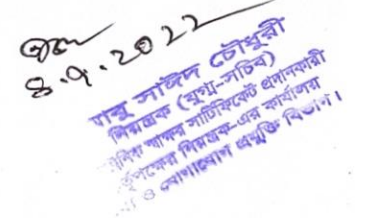 ৪.৭.২০২২
আবু সাঈদ চৌধুরী
নিয়ন্ত্রক (যুগ্ম-সচিব)
স্বাক্ষর সার্টিফিকেট প্রদানকারী
কর্তৃপক্ষের নিয়ন্ত্রক-এর কার্যালয়
ও যোগাযোগ প্রযুক্তি বিভাগ।